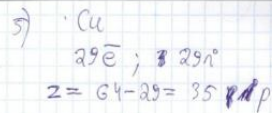 5) Cu
29ē; 29n
z = 64-29 = 35 p